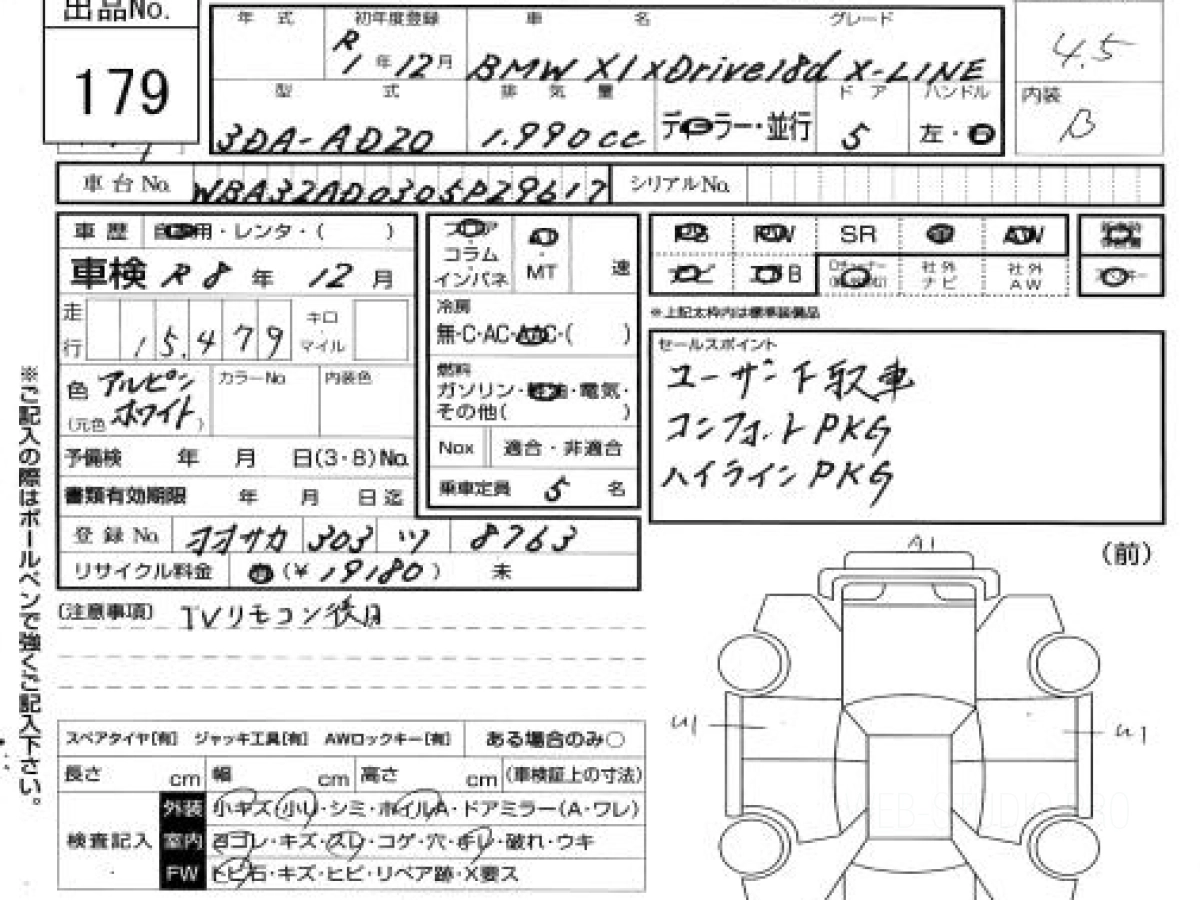 出品No.
179
年 式
初年度登録
R1年12月
車 名
グレード
BMW X1 xDrive18d X-LINE
4.5
型 式
3DA-AD20
排 気 量
1.990cc
ディーラー・並行
ドア
5
ハンドル
左・右
内装
B
車台No.
WBA32AD0305P29617
シリアルNo.
車歴
自家用・レンタ・( )
車検 R8年12月
走行
15.479
キロ
マイル
色
(元色 )
アルピンホワイト
カラーNo
内装色
予備検 年 月 日(3・8)No.
書類有効期限 年 月 日迄
登録No.
オオサカ 303 ツ 8763
リサイクル料金
(¥19180) 未
フロア
コラム
インパネ
AT
MT
速
冷房
無・C・AC・AAC・( )
燃料
ガソリン・軽油・電気・
その他( )
Nox
適合・非適合
乗車定員 5 名
PS
PW
SR
AW
ナビ
社外ナビ
社外AW
※上記太枠内は標準装備品
セールスポイント
ユーザー下取車
コンフォートPKG
ハイラインPKG
※ご記入の際はボールペンで強くご記入下さい。
(注意事項) TVリモコン後日
スペアタイヤ[有] ジャッキ工具[有] AWロックキー[有] ある場合のみ○
長さ cm 幅 cm 高さ cm (車検証上の寸法)
検査記入
外装 小キズ・小U・シミ・ホイルA・ドアミラー(A・ワレ)
室内 ヨゴレ・キズ・スレ・コゲ・穴・チレ・破れ・ウキ
FW トビ石・キズ・ヒビ・リペア跡・X要ス
(前)
A1
U1
U1